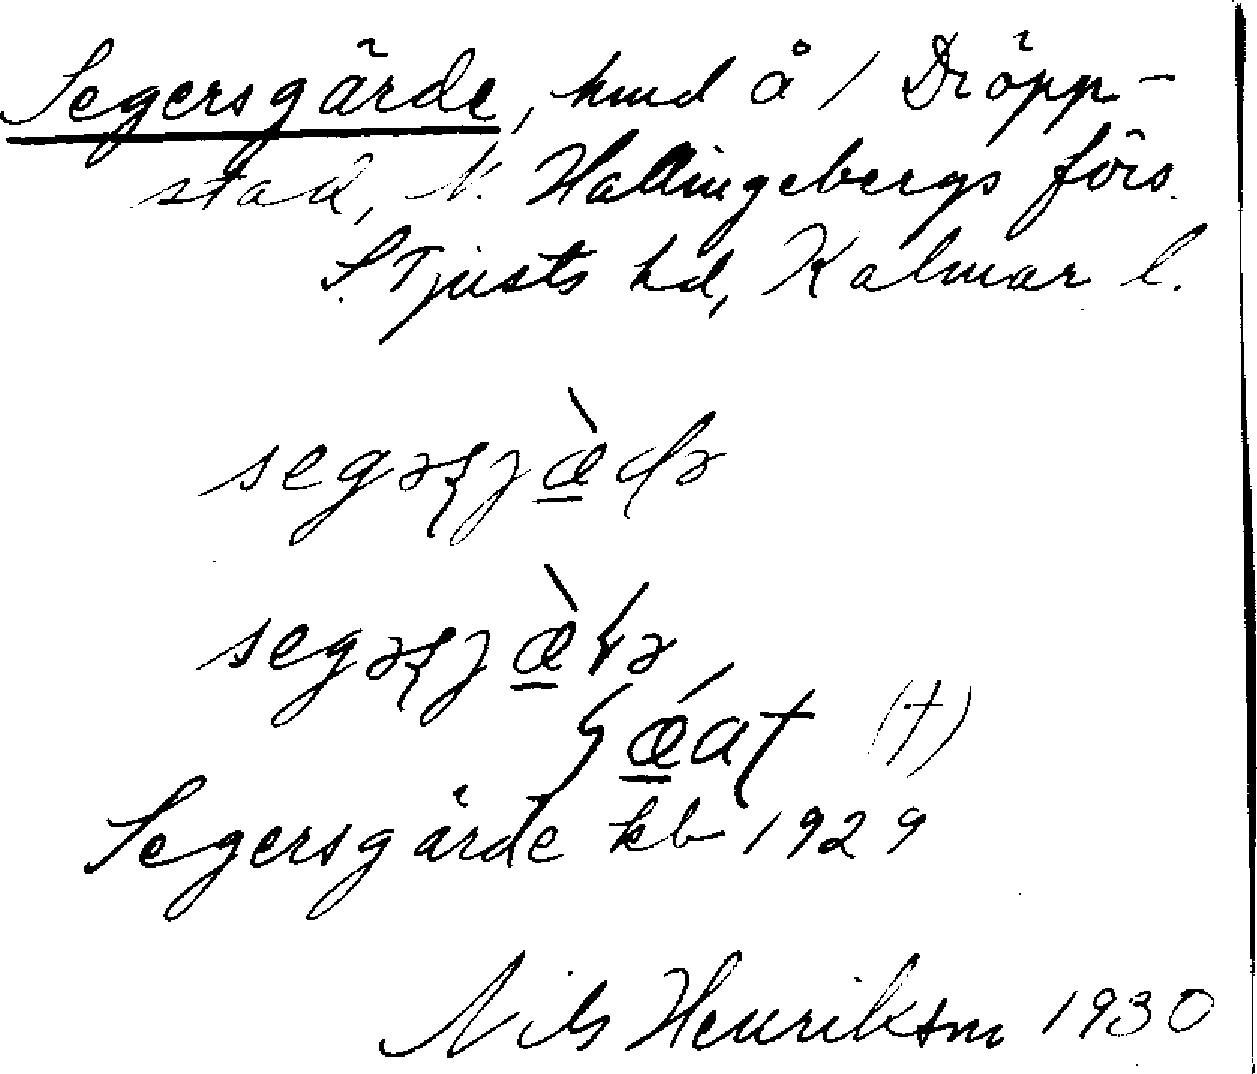 Segersgärde, hmd å 1 Dröpp-
stad, N. Hallingebergs förs.
S. Tjusts hd, Kalmar l.
segəʂjæ̀ɖə
segəʂjæ̀
Segersgärde kb 1929
Nils Henrikson 1930